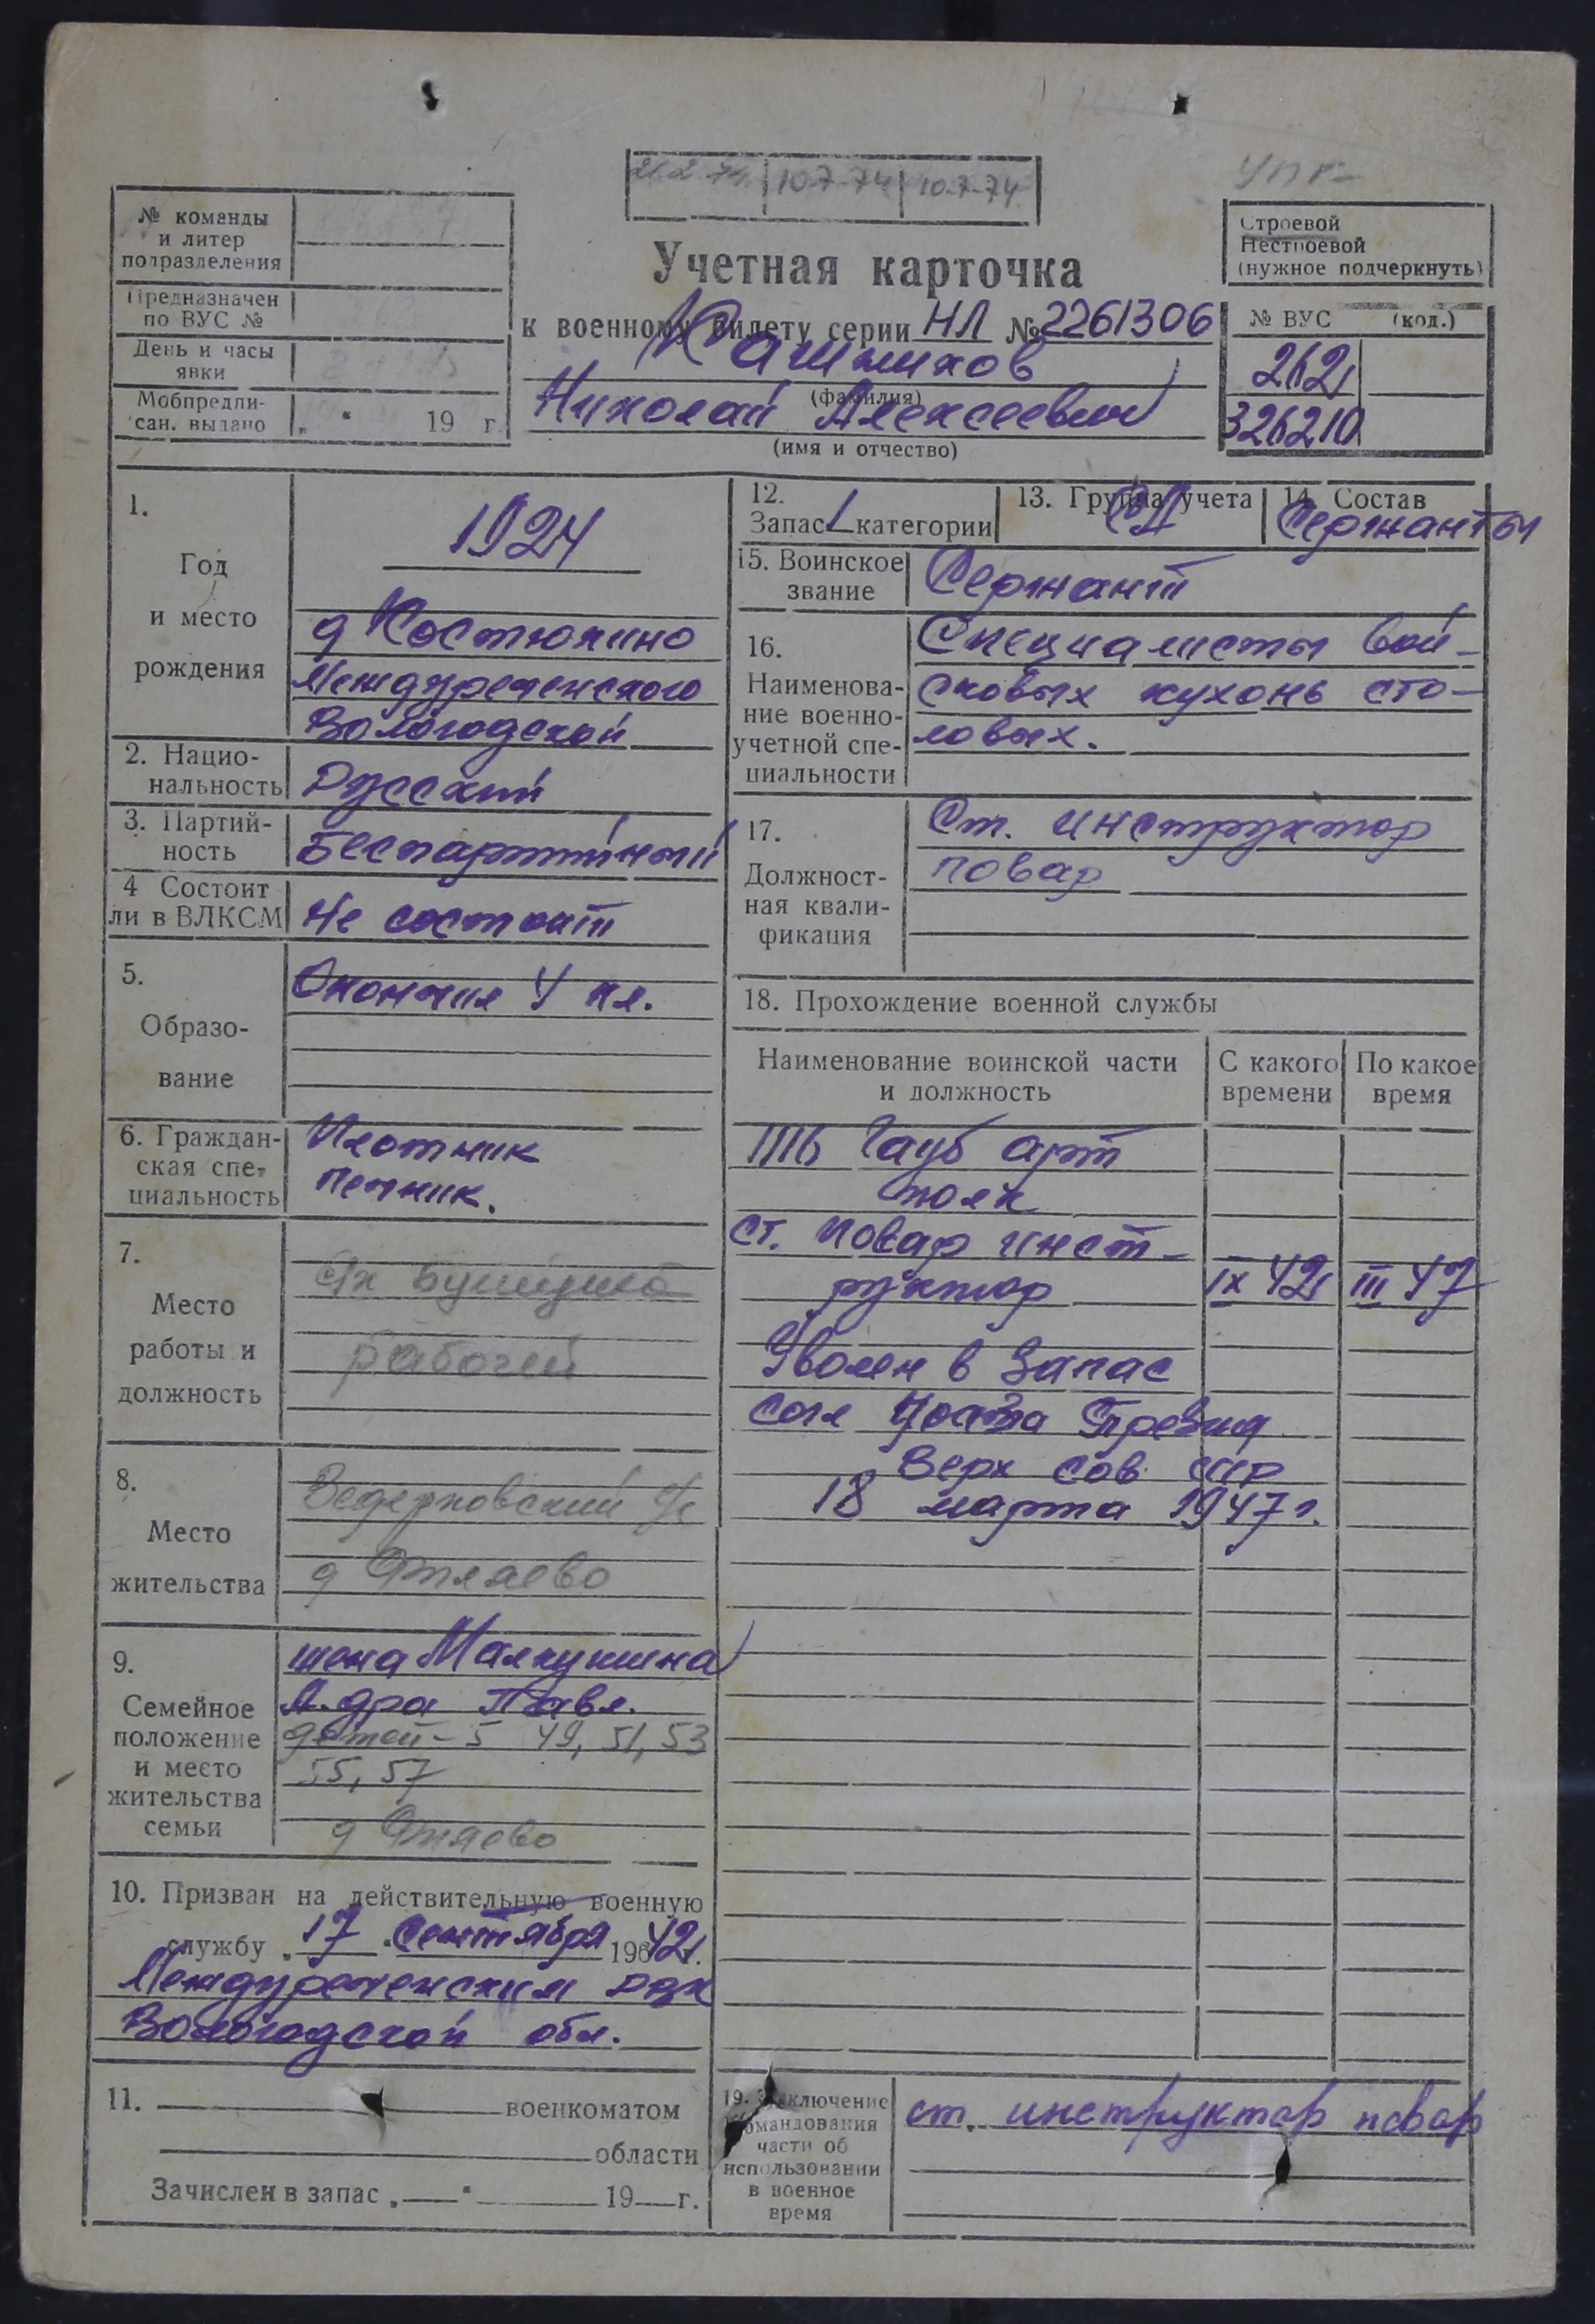 26.2.74 10.7.74 10.7.74
УПК
№ команды
и литер
подразделения
Предназначен
по ВУС №
День и часы
явки
Мобпредпи-
сан. выдано „ “ 19 г.
Учетная карточка
к военному билету серии НЛ № 2261306
(фамилия)
Николай Алексеевич
(имя и отчество)
Строевой
Нестроевой
(нужное подчеркнуть)
№ ВУС (код.)
262
326210
1.
Год
и место
рождения
1924
д Костюнино
Междуреченского
Вологодской
2. Нацио-
нальность
Русский
3. Партий-
ность
Беспартийный
4 Состоит
ли в ВЛКСМ
Не состоит
5.
Образо-
вание
Окончил 4 кл.
6. Граждан-
ская спе-
циальность
Плотник
печник.
7.
Место
работы и
должность
рабочий
8.
Место
жительства
9.
Семейное
положение
и место
жительства
семьи
жена
А-дра Павл.
детей - 5 49, 51, 53
55, 57
10. Призван на действительную военную
службу „ 17 “ Сентября 196 42 г.
Междуреченским РВК
Вологодской обл.
11. военкоматом
области
Зачислен в запас „ “ 19 г.
12.
Запас 1 категории
13. Группа учета
СА
14. Состав
Сержанты
15. Воинское
звание
Сержант
16.
Наименова-
ние военно-
учетной спе-
циальности
Специалисты вой-
сковых кухонь сто-
ловых.
17.
Должност-
ная квали-
фикация
Ст. инструктор
повар
18. Прохождение военной службы
Наименование воинской части
и должность
С какого
времени
По какое
время
Гауб арт
полк
ст. повар инст-
руктор IX 42 III 47
Уволен в запас
согл Указа Презид
Верх Сов ССР
18 марта 1947 г.
19. Заключение
командования
части об
использовании
в военное
время
ст. инструктор повар